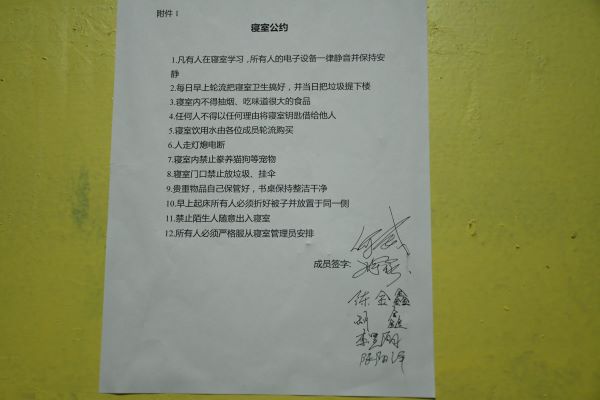 附件 1
寝室公约
1.凡有人在寝室学习,所有人的电子设备一律静音并保持安
静
2.每日早上轮流把寝室卫生搞好，并当日把垃圾提下楼
3.寝室内不得抽烟、吃味道很大的食品
4.任何人不得以任何理由将寝室钥匙借给他人
5.寝室饮用水由各位成员轮流购买
6.人走灯熄电断
7.寝室内禁止豢养猫狗等宠物
8.寝室门口禁止放垃圾、挂伞
9.贵重物品自己保管好，书桌保持整洁干净
10.早上起床所有人必须折好被子并放置于同一侧
11.禁止陌生人随意出入寝室
12.所有人必须严格服从寝室管理员安排
成员签字:
陈金鑫
胡鑫